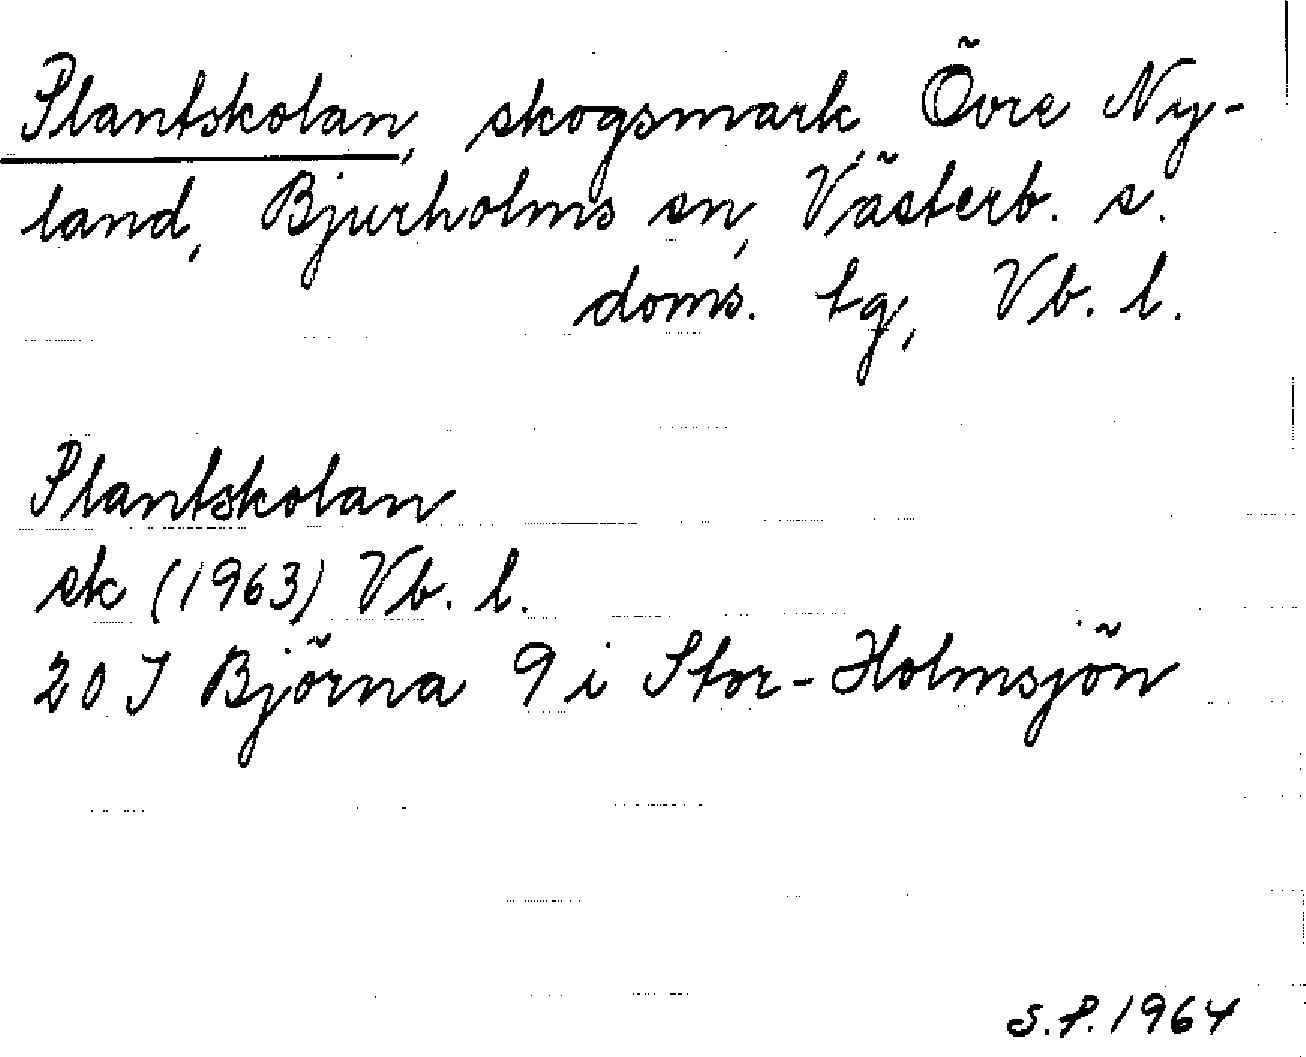 Plantskolan, skogsmark, Övre Ny-
land, Bjurholms sn, Västerb. s.
doms. tg, Vb. l.
Plantskolan
ek (1963) Vb. l.
20 J Björna 9 i Stor-Holmsjön
S.P. 1964